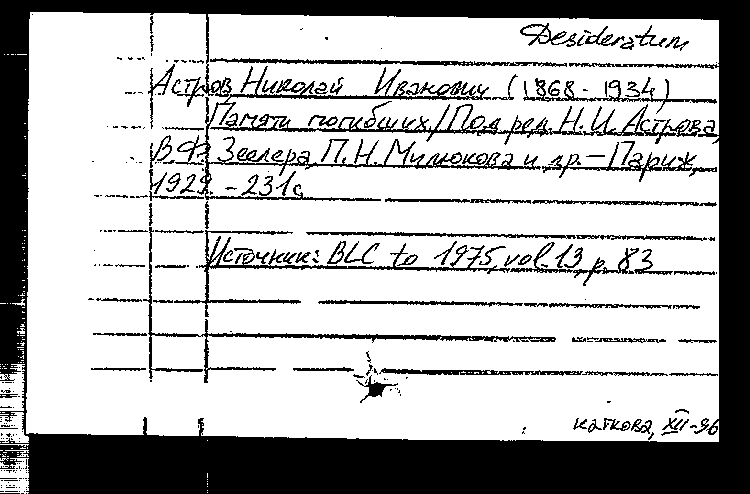 Desideratum
Астров Николай Иванович (1868 - 1934)
Памяти погибших / Под ред. Н.И. Астрова,
В.Ф. Зеелера, П.Н. Милюкова и др. – Париж,
1929. – 231 с.
Источник: BLC to 1975, vol. 13, p. 83
Каткова, XII-96